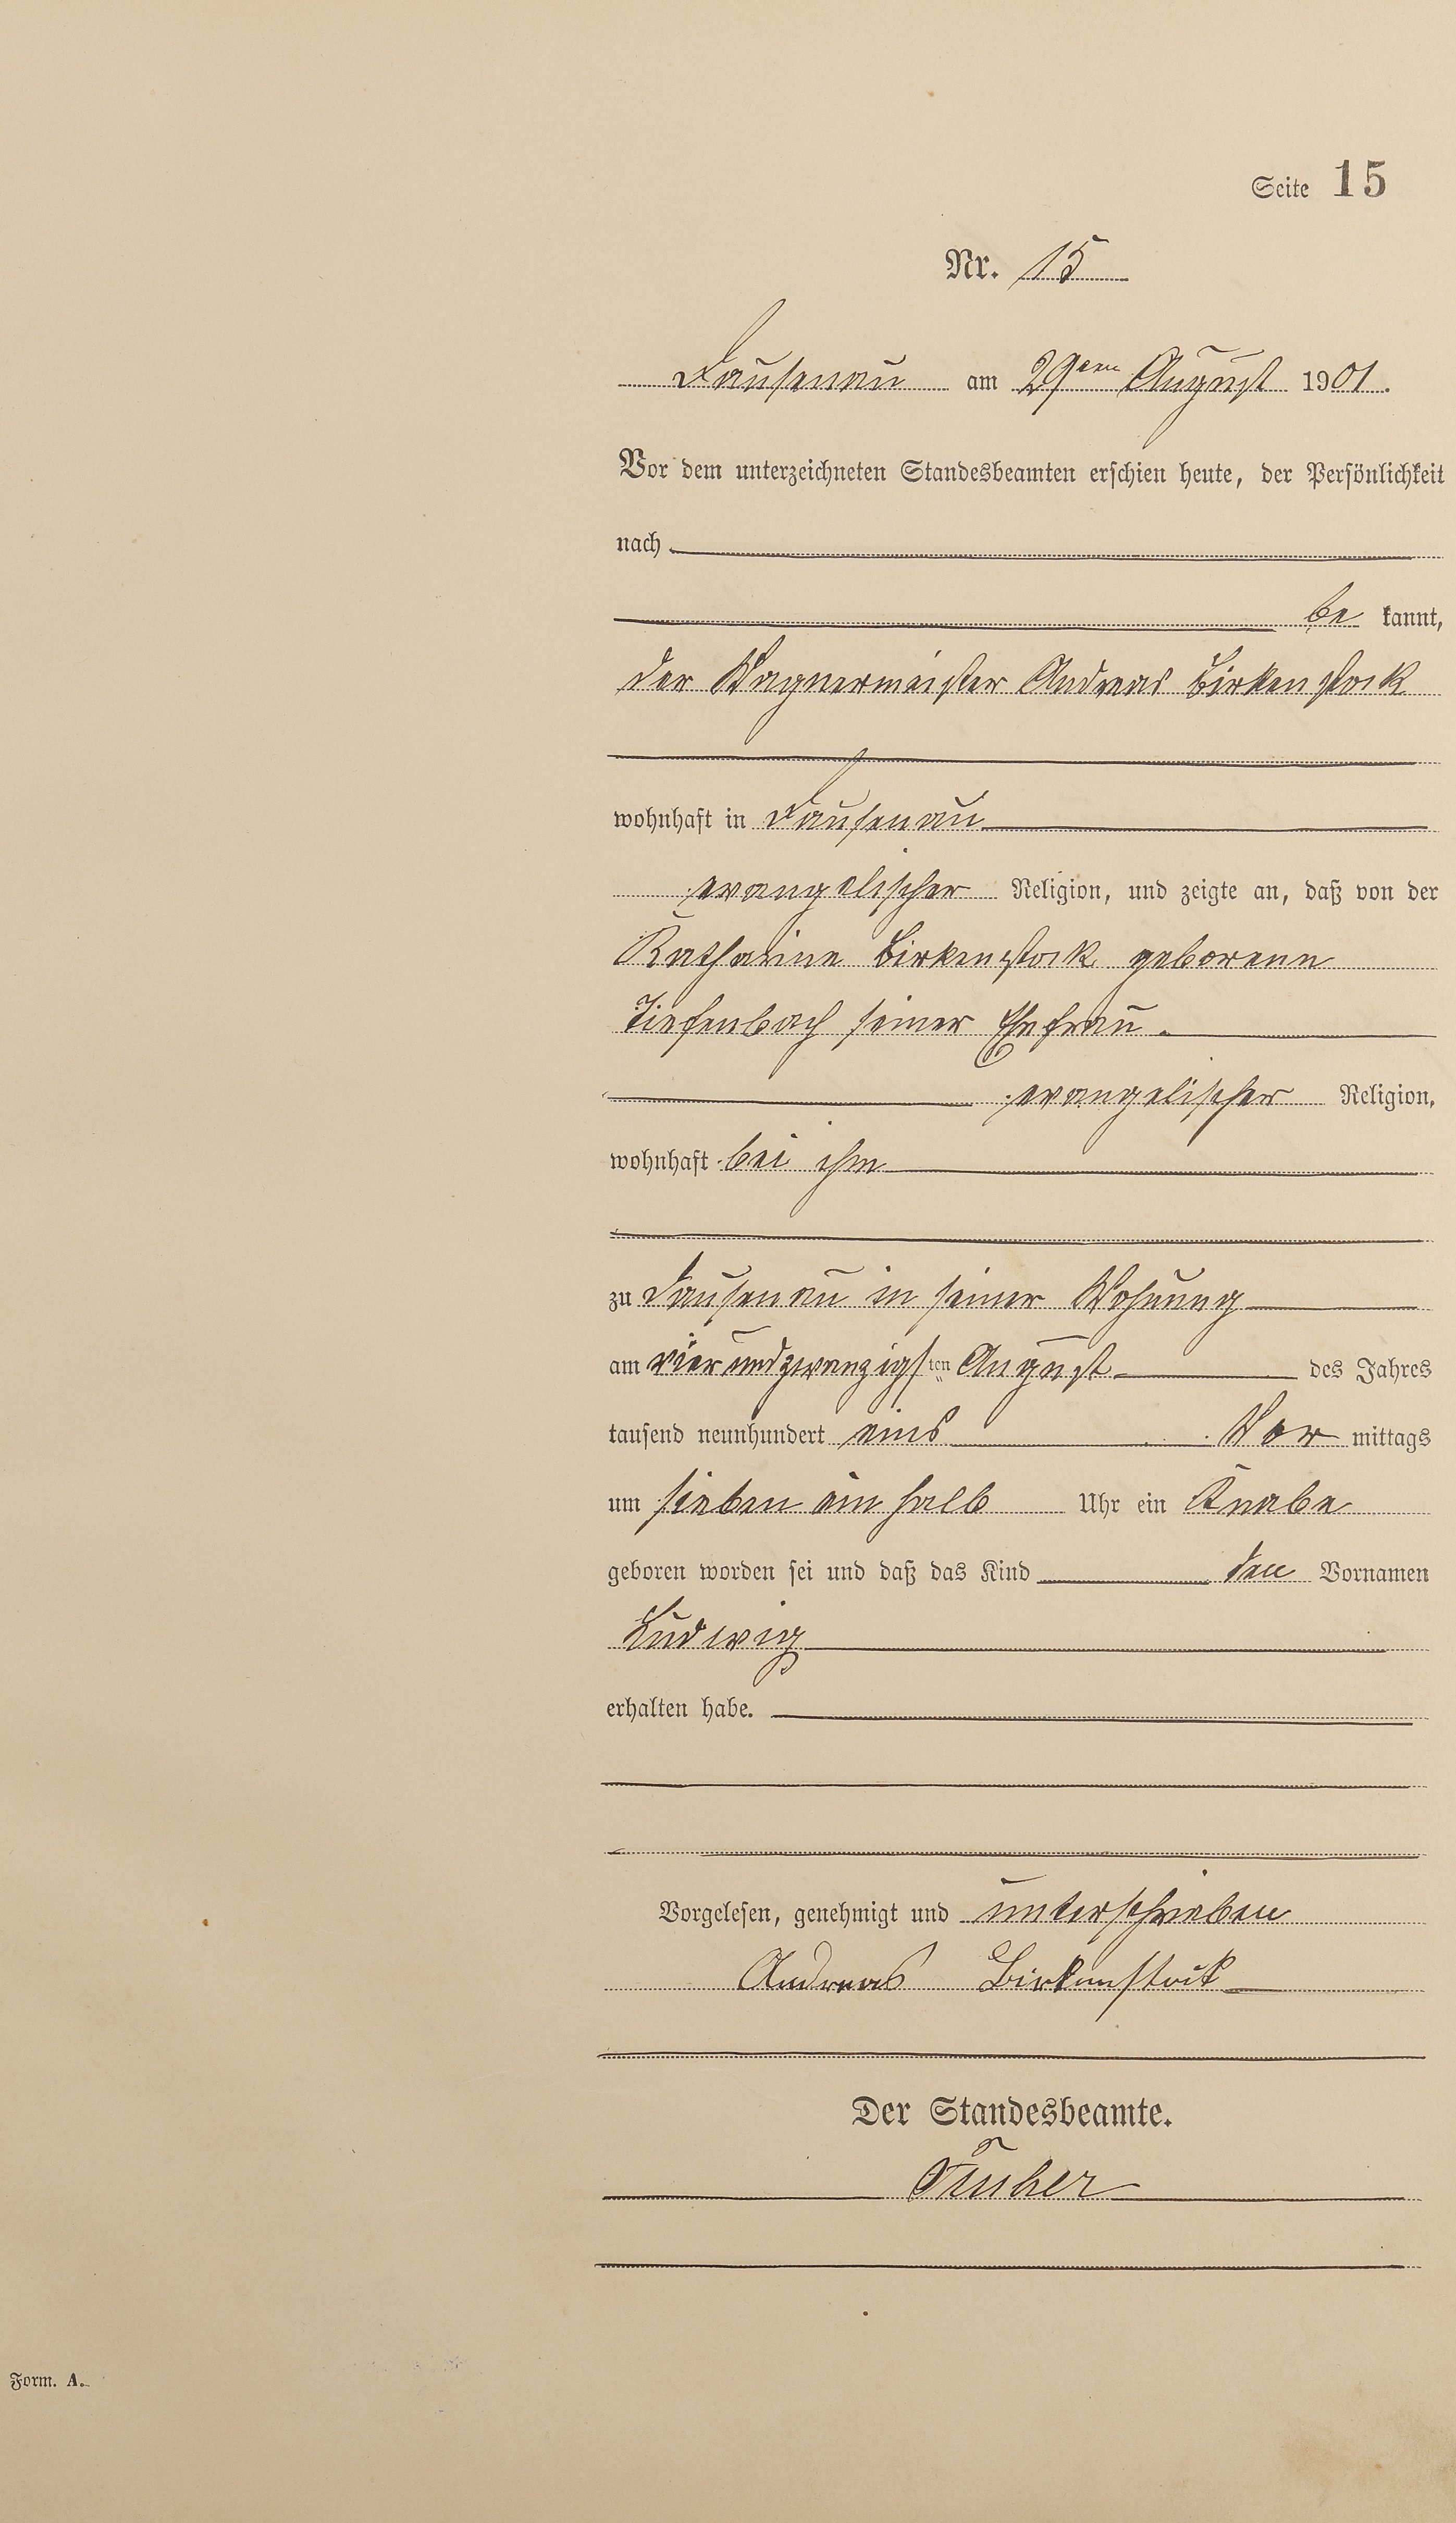 Seite 15
Nr. 15
Dausenau am 29ten August 1901.
Vor dem unterzeichneten Standesbeamten erschien heute, der Persönlichkeit
nach
be kannt,
der Wagnermeister Andreas Birkenstock
wohnhaft in Dausenau
evangelischer Religion, und zeigte an, daß von der
Katharine Birkenstock geborene
Tiefenbach seiner Ehefrau.
evangelischer Religion,
wohnhaft bei ihm
zu Dausenau in seiner Wohnung
am vierundzwanzigsten August des Jahres
tausend neunhundert eins Vor mittags
um sieben ein halb Uhr ein Knabe
geboren worden sei und daß das Kind den Vornamen
Ludwig
erhalten habe.
Vorgelesen, genehmigt und unterschrieben
Andreas Birkenstock
Der Standesbeamte.
Form. A.